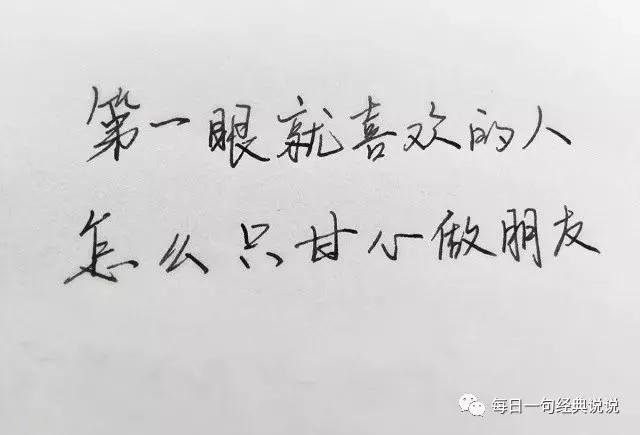 第一眼就喜欢的人
怎么只甘心做朋友
每日一句经典说说